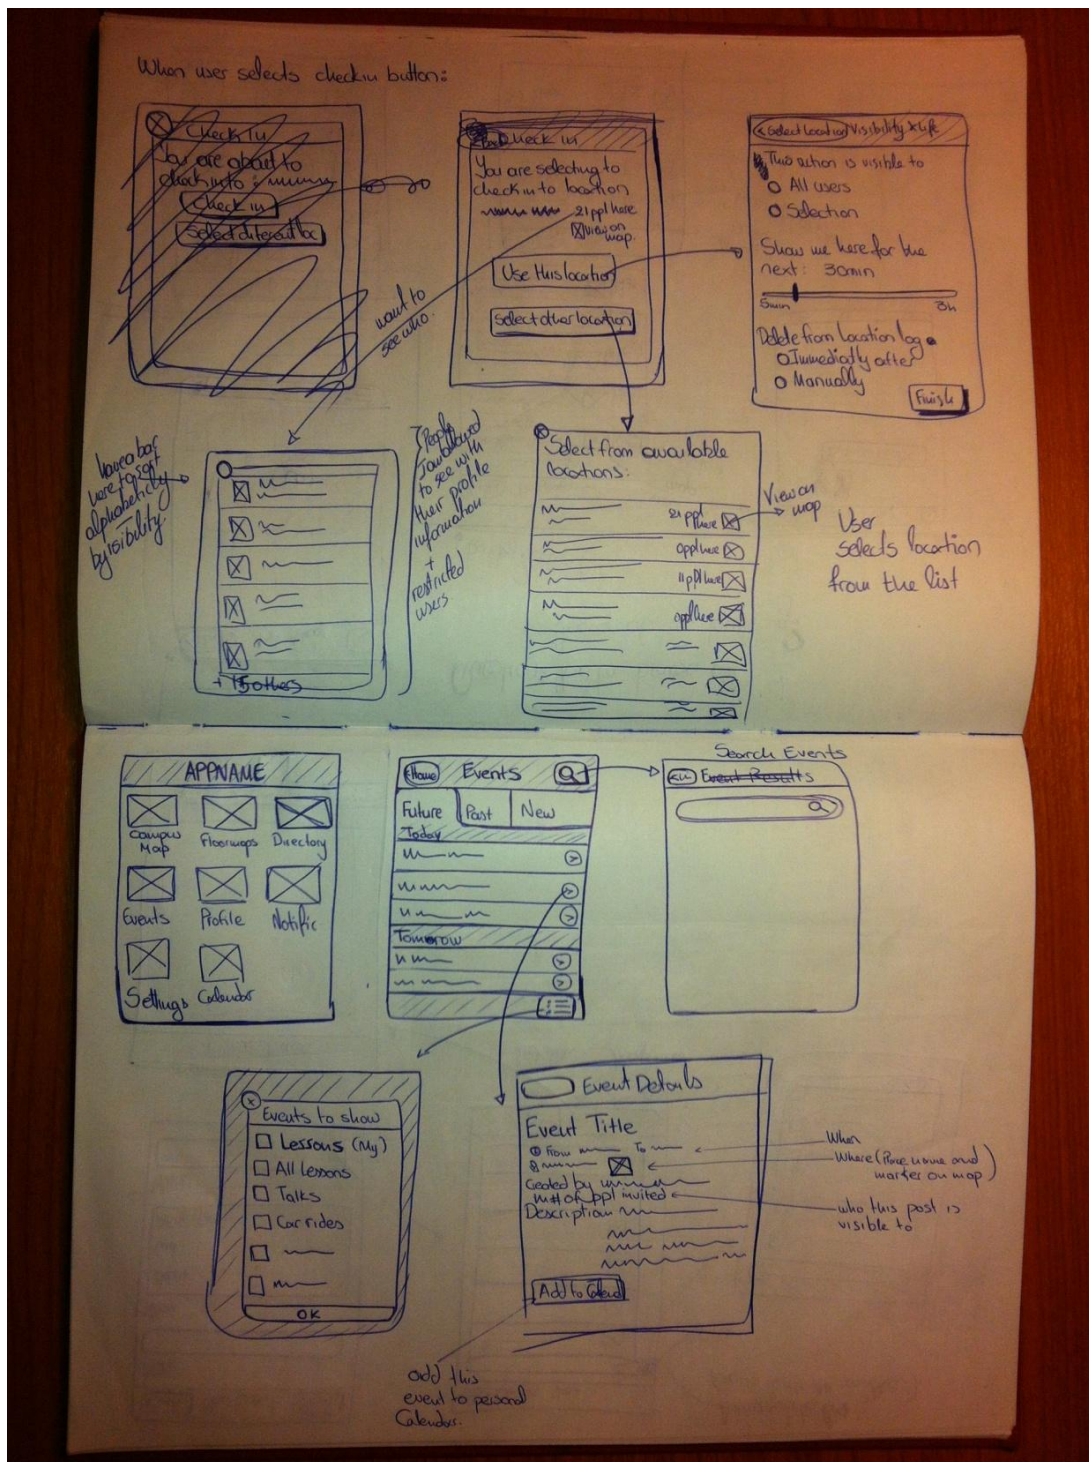 When user selects checkin button:
Check In
You are about to
check into:
Check in
Select different loc
Check in
You are selecting to
check in to location
21 ppl here
View on
map.
Use this location
Select other location
want to
see who.
< Select location
Visibility & life
This action is visible to
All users
Selection
Show me here for the
next: 30min
5min
3h
Delete from location log
Immediatly after
Manually
Finish
have a bar
here to sort
alphabeticly
by visibility.
+ 15 others
People
I am allowed
to see with
their profile
information
+
restricted
users
Select from available
locations:
21 ppl
here
0 ppl here
11 ppl here
0 ppl here
View on
map
User
selects location
from the list
APPNAME
Campus
Map
Floormaps
Directory
Events
Profile
Notific
Settings
Calendar
< Home
Events
Future
Past
New
Today
Tomorrow
Search Events
Event Results
Events to show
Lessons (My)
All Lessons
Talks
Car rides
OK
Event Details
Event Title
From
To
Created by
# of ppl invited
Description
Add to Calend
When
Where (Place name and
marker on map)
who this post is
visible to
add this
event to personal
Calendar.